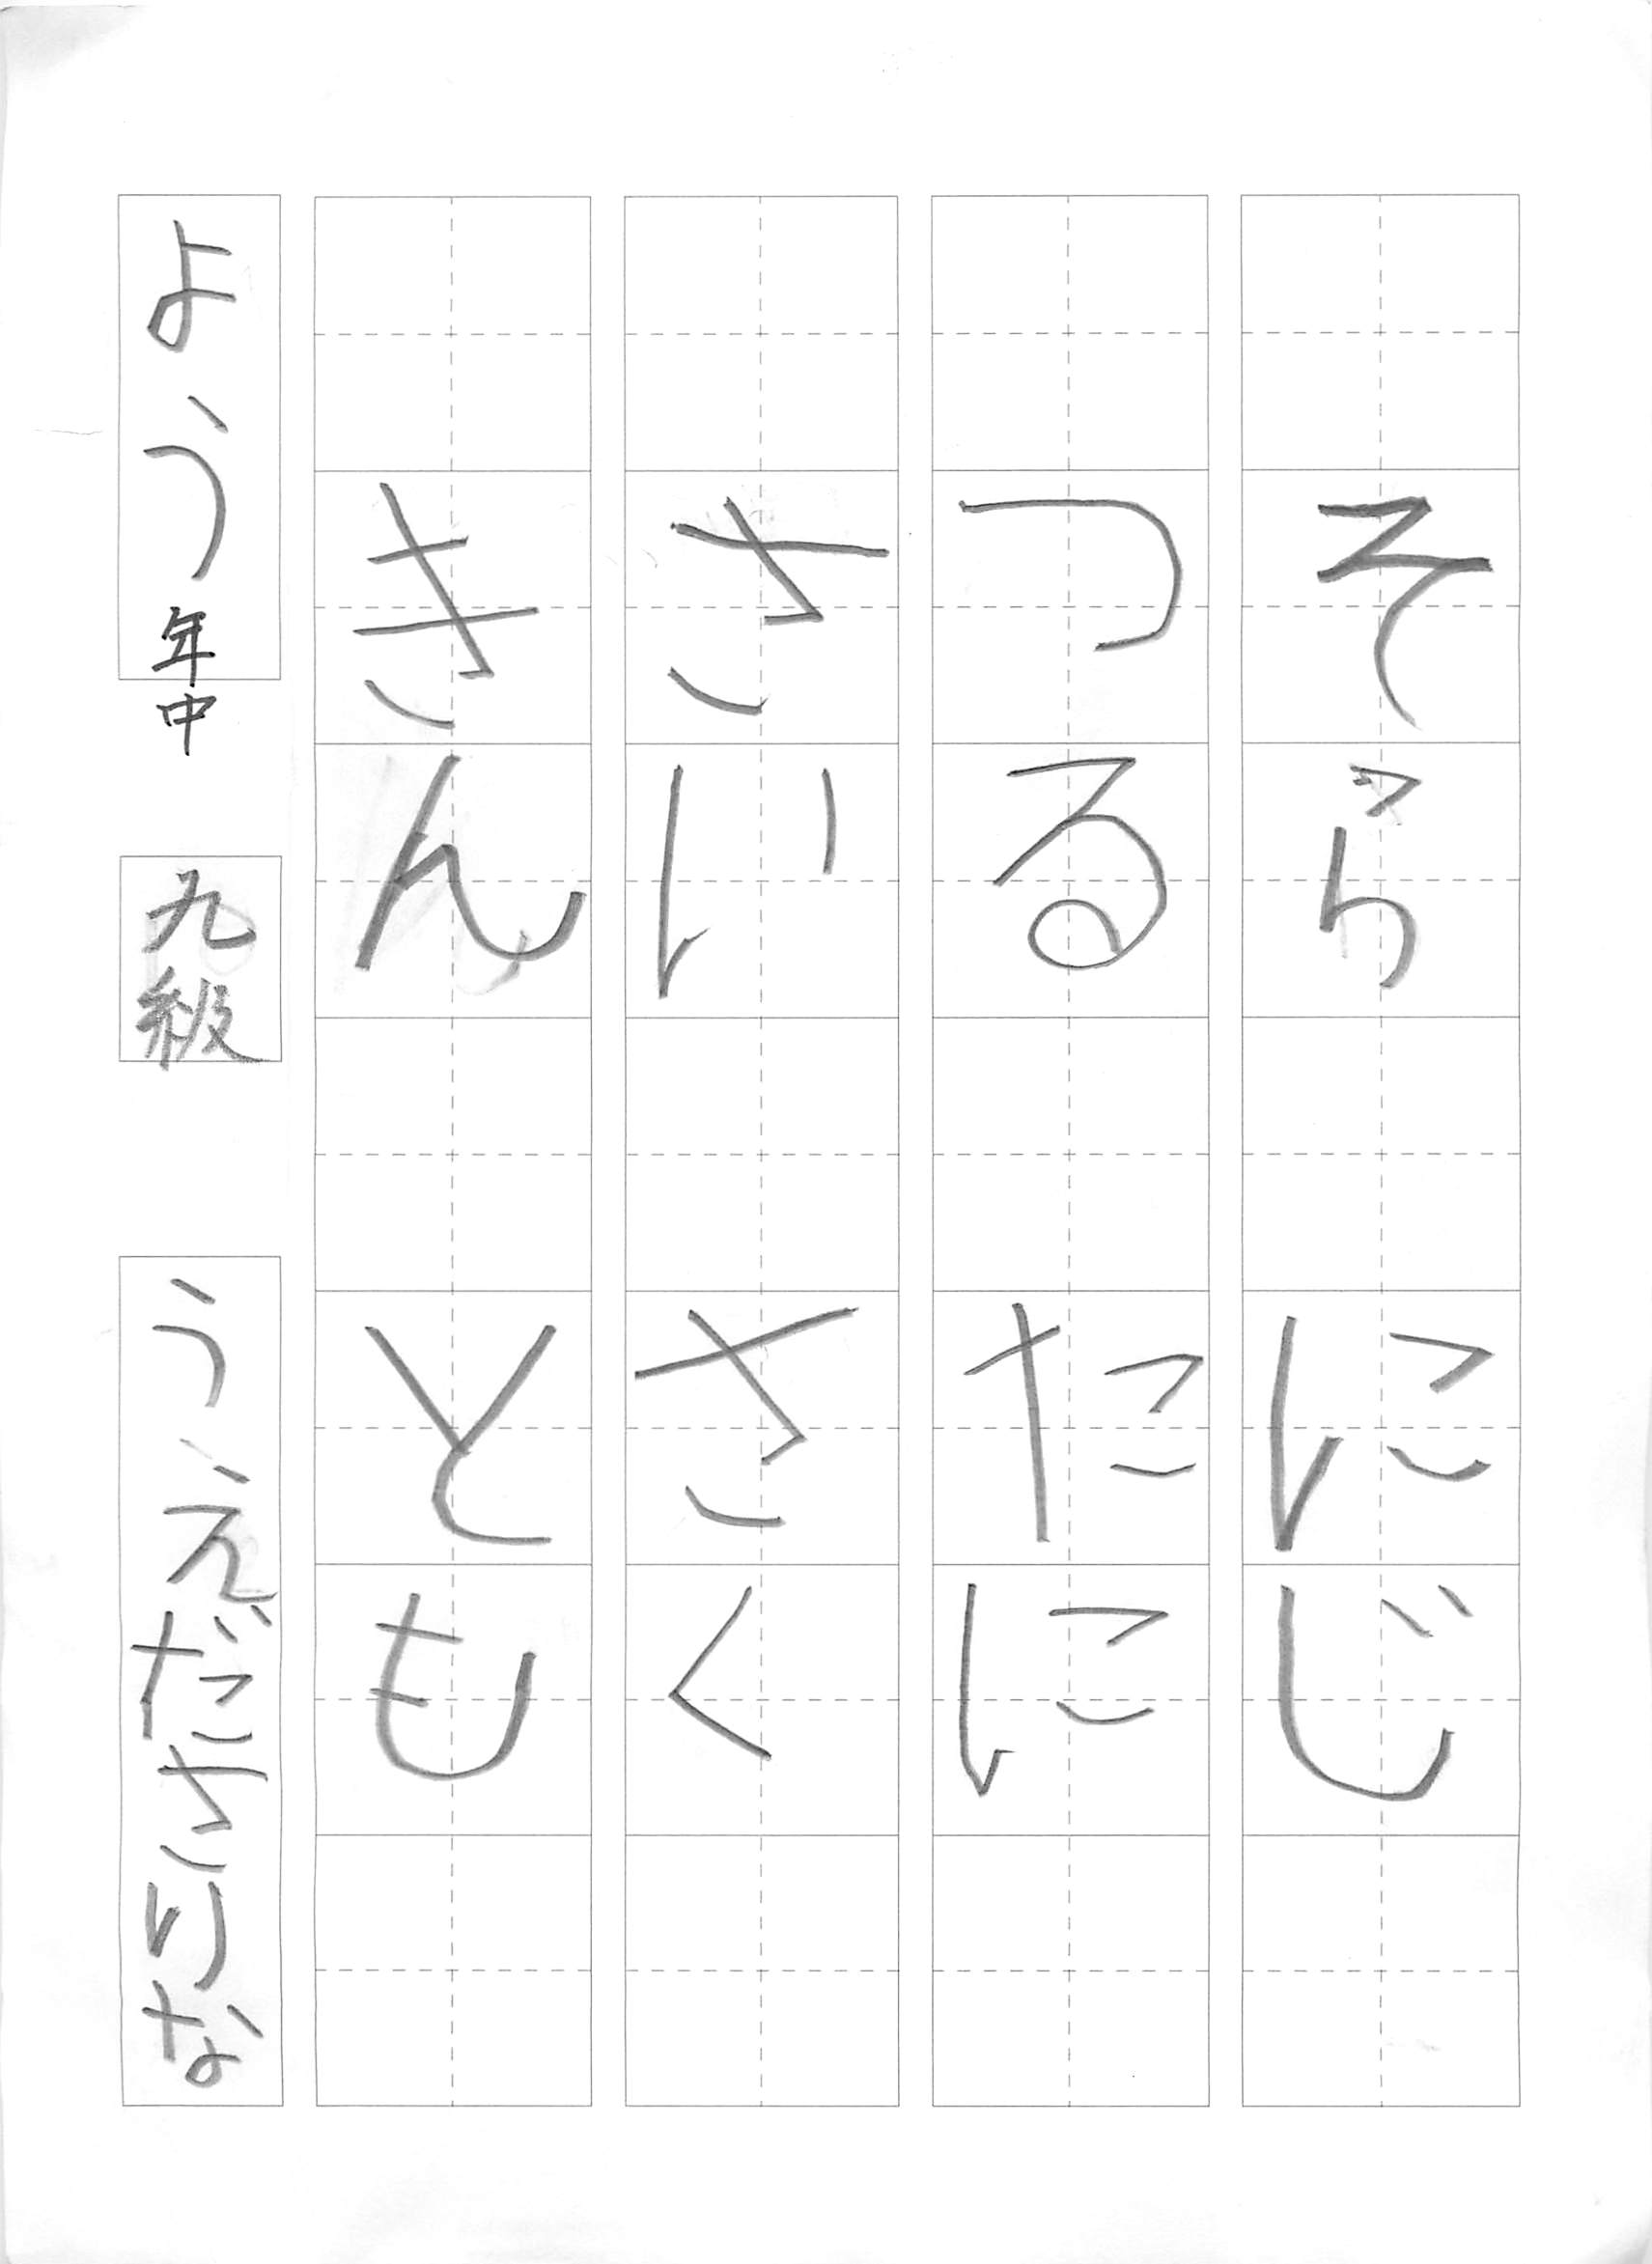 そら にじ
つる たに
さい さく
きん とも
よう年中 九級 うえださりな